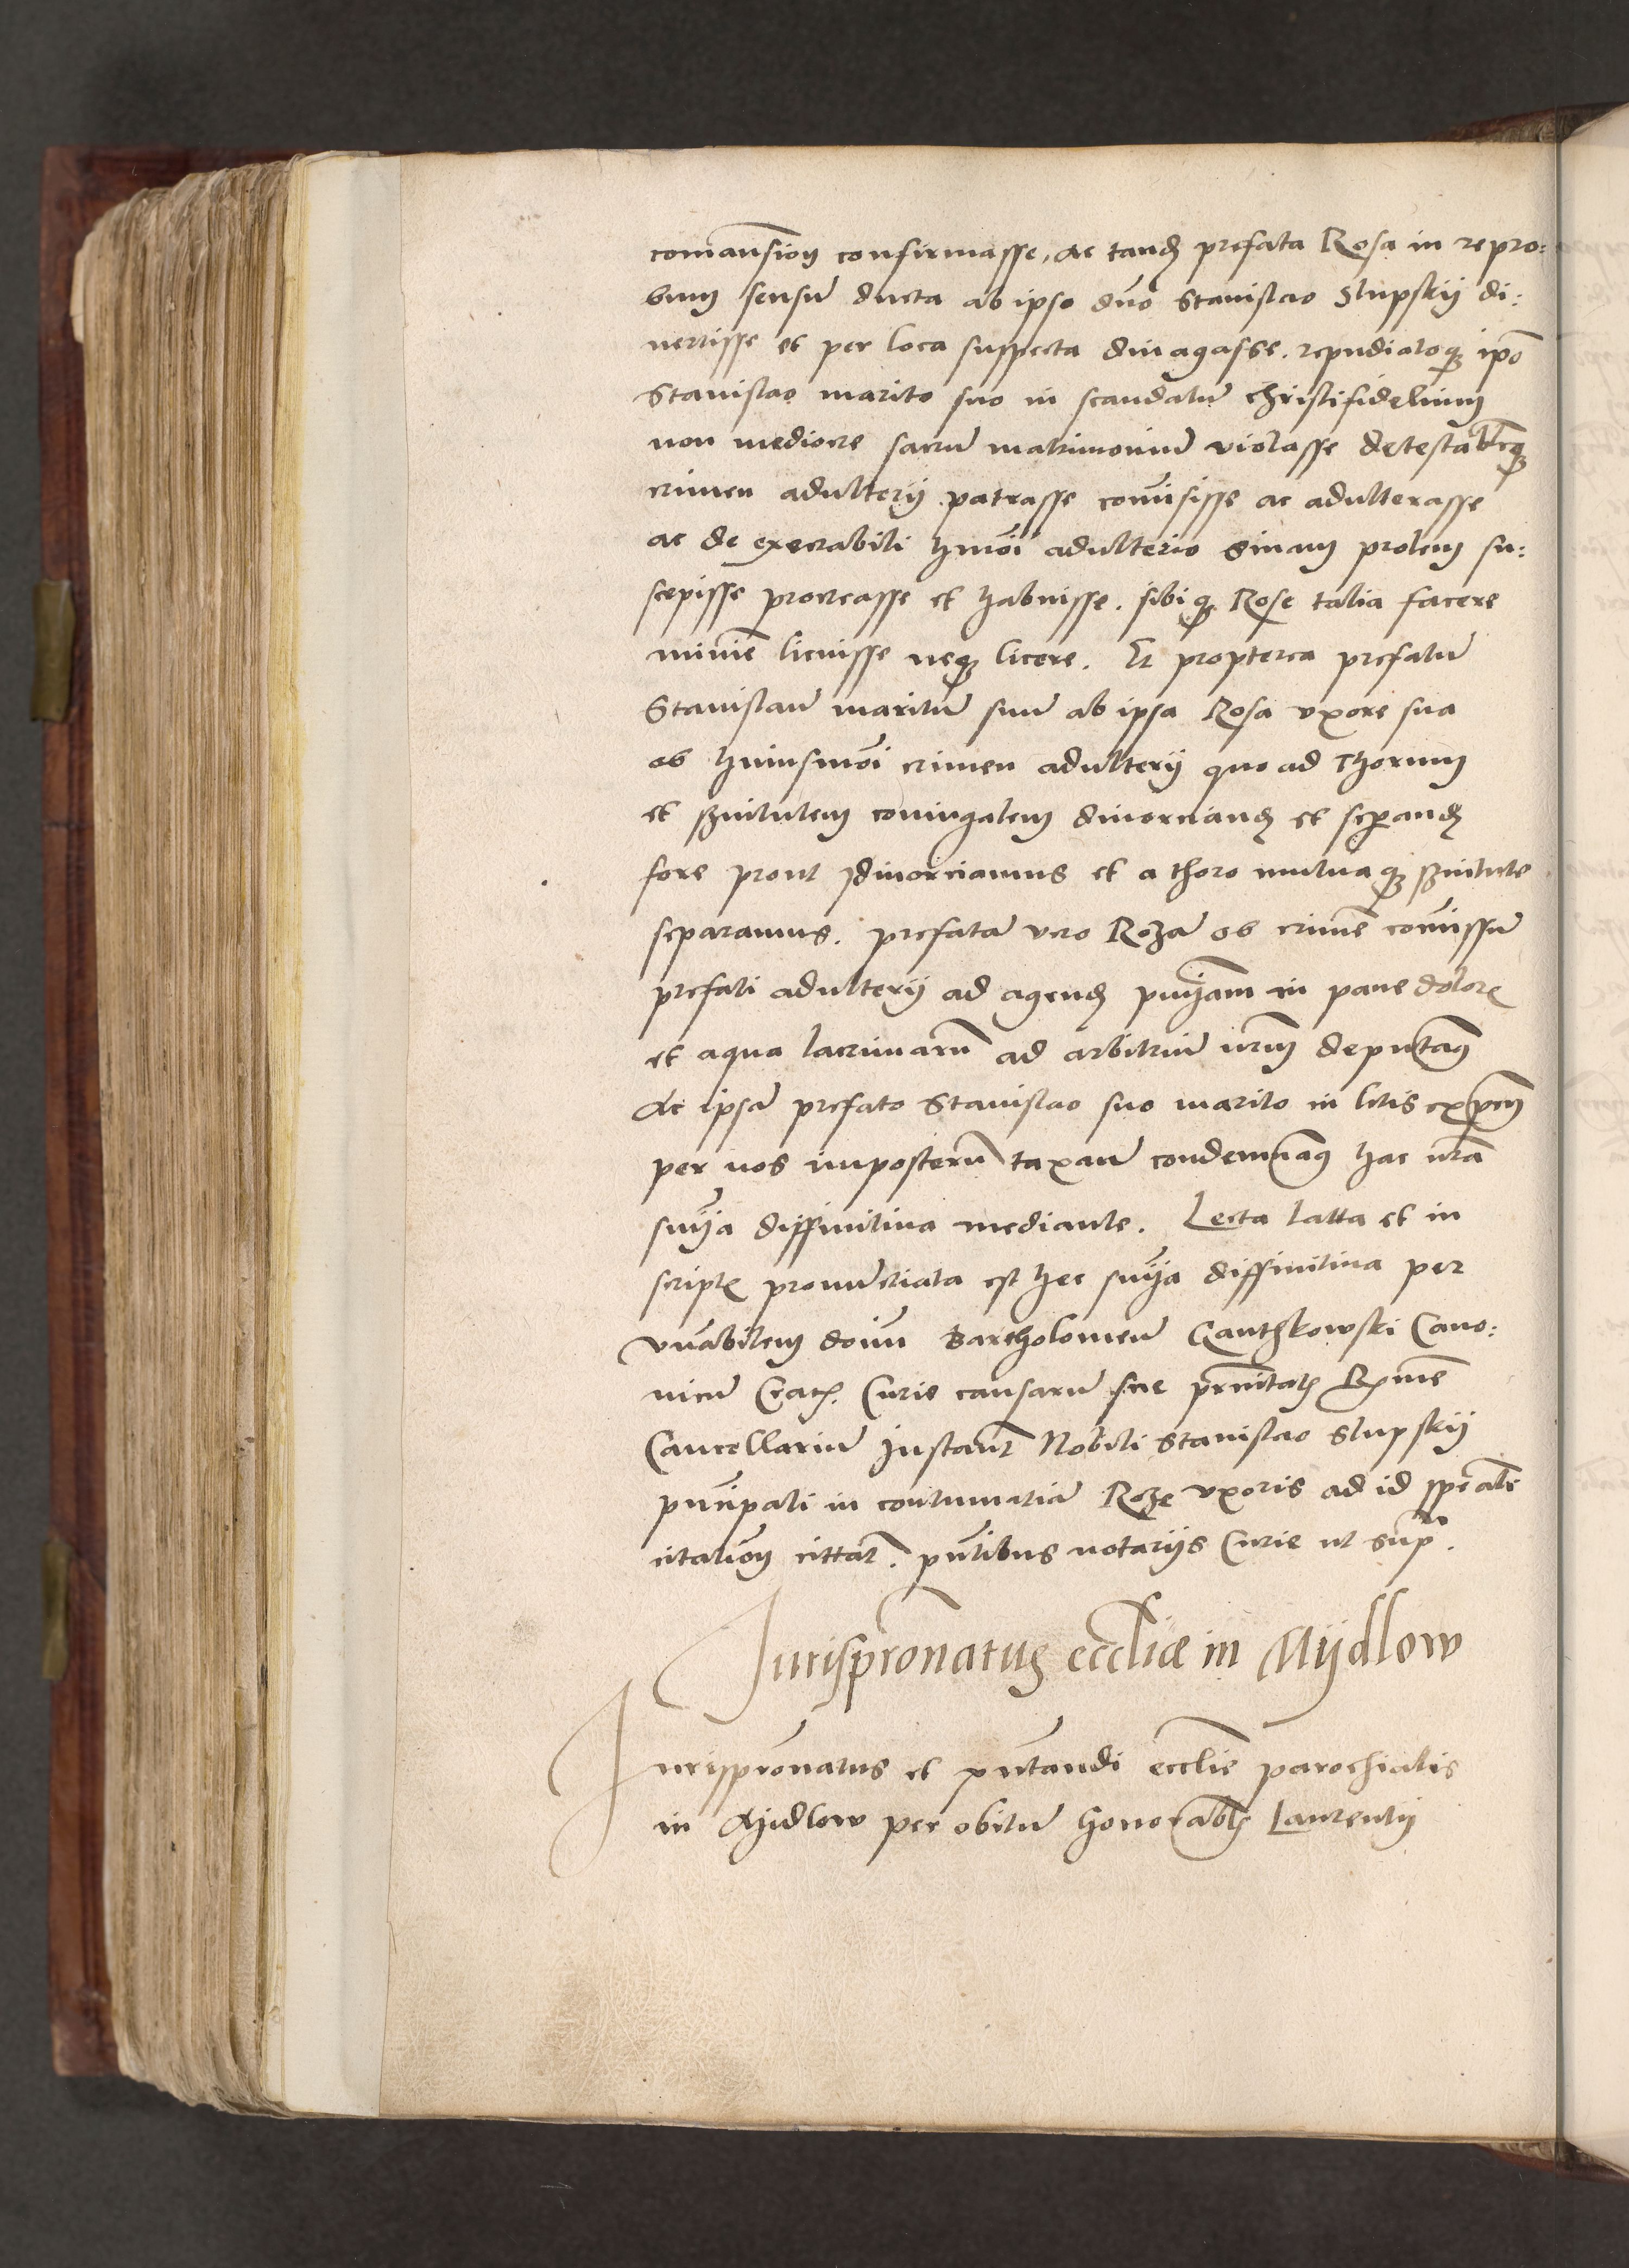 comansiony confirmasse, ac tandꝫ prefata Rosa in repro:
bum sensū ducta ab ipso dn̄o Stanislao Slupskij di:
vertisse et per loca suspecta divagasse. repudiatoqꝫ ip̄o
Stanislao marito suo in scandalū christifidelium
non mediocre sacrū matrimoniū violasse detestabileqꝫ
crimen adulterij patrasse com̄isisse ac adulterasse
ac de execrabili hmōi adulterio binam prolem su:
scepisse procreasse et habuisse. sibiqꝫ Rose talia facere
minīe licuisse neqꝫ licere. Et propterea prefatū
Stanislaū maritū suū ab ipsa Rosa uxore sua
ob huiusmōi crimen adulterij quo ad Thorum
et s̄vitutem coniugalem divorciandꝫ et sep̄andꝫ
fore prout divorciamus et a thoro mutuaqꝫ s̄vitute
separamus. prefatā vero Rozā ob crimē com̄issū
prefati adulterij ad agendꝫ pnījam in pane dolorꝭ
et aqua lacrimarū ad arbitriū nrm̄ deputamꝰ
Ac ipsā prefato Stanislao suo marito in litis expen̄
per nos imposterū taxan̄ condemnamꝰ hac nrā
snīja diffinitiva mediante. Lecta latta et in
scriptꝭ pronunctiata est hec snīja diffinitiva per
vn̄abilem domm̄ Bartholomeū Ganthkowski Cano:
nicū Cracꝭ. Curie causarū sue pr̄nitatꝭ Rx̄me
Cancellariū Instan̄t Nobili Stanislao Slupskij
prin̄cipali in contumatiā Roze uxoris ad id sp̄ealr̄
citation̄ cittat̄. pn̄tibus notarijs Curie ut supᵃ.
Jurispr̄onatus eccliæ in Mijdlow
Jurispr̄onatus et pn̄tandi eccl̄ie parochialis
in Mijdlow per obitū honorabl̄ꝭ Laurentij